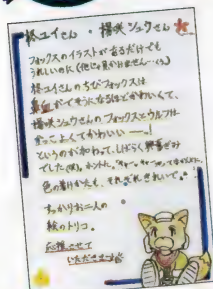 柊ユイさん・楊咲シュウさん
フォックスのイラストがあるだけでも
うれしいのに(他じゃ見かけません…くぅ)
柊ユイさんのちびフォックスは
鼻血がでそうになるほどかわいくて、
楊咲シュウさんのフォックスとウルフは
かっこよくてかわいいーー!
というのが加わって、しばらく興奮ぎみ
でした(笑)。ホントに、
色の着けかたも、それぞれきれいで。
すっかりお二人の
絵のトリコ。
応援させて
いただきます